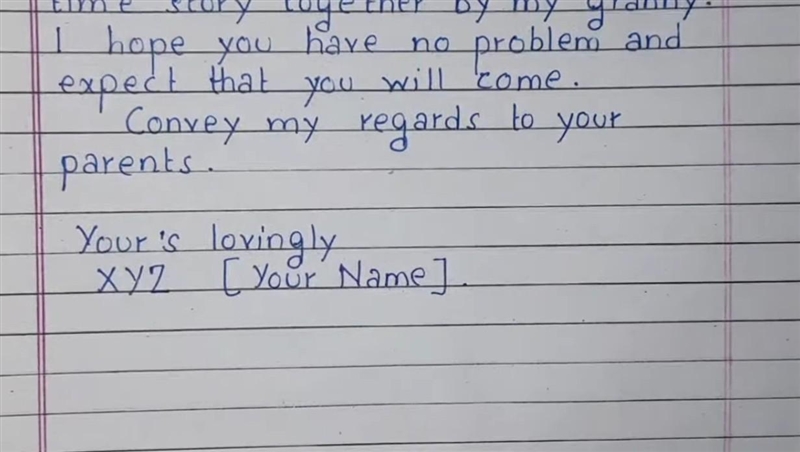 time story together by my granny.
I hope you have no problem and
expect that you will come.
Convey my regards to your
parents.
Your's lovingly
XYZ [Your Name].